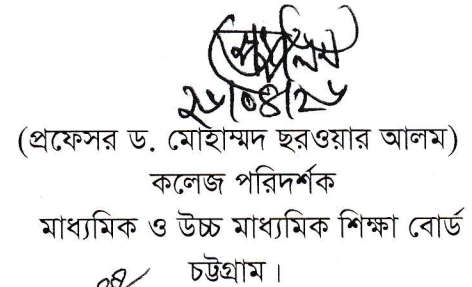 ২৮/০৪/২৮
(প্রফেসর ড. মোহাম্মদ ছরওয়ার আলম)
কলেজ পরিদর্শক
মাধ্যমিক ও উচ্চ মাধ্যমিক শিক্ষা বোর্ড
চট্টগ্রাম।